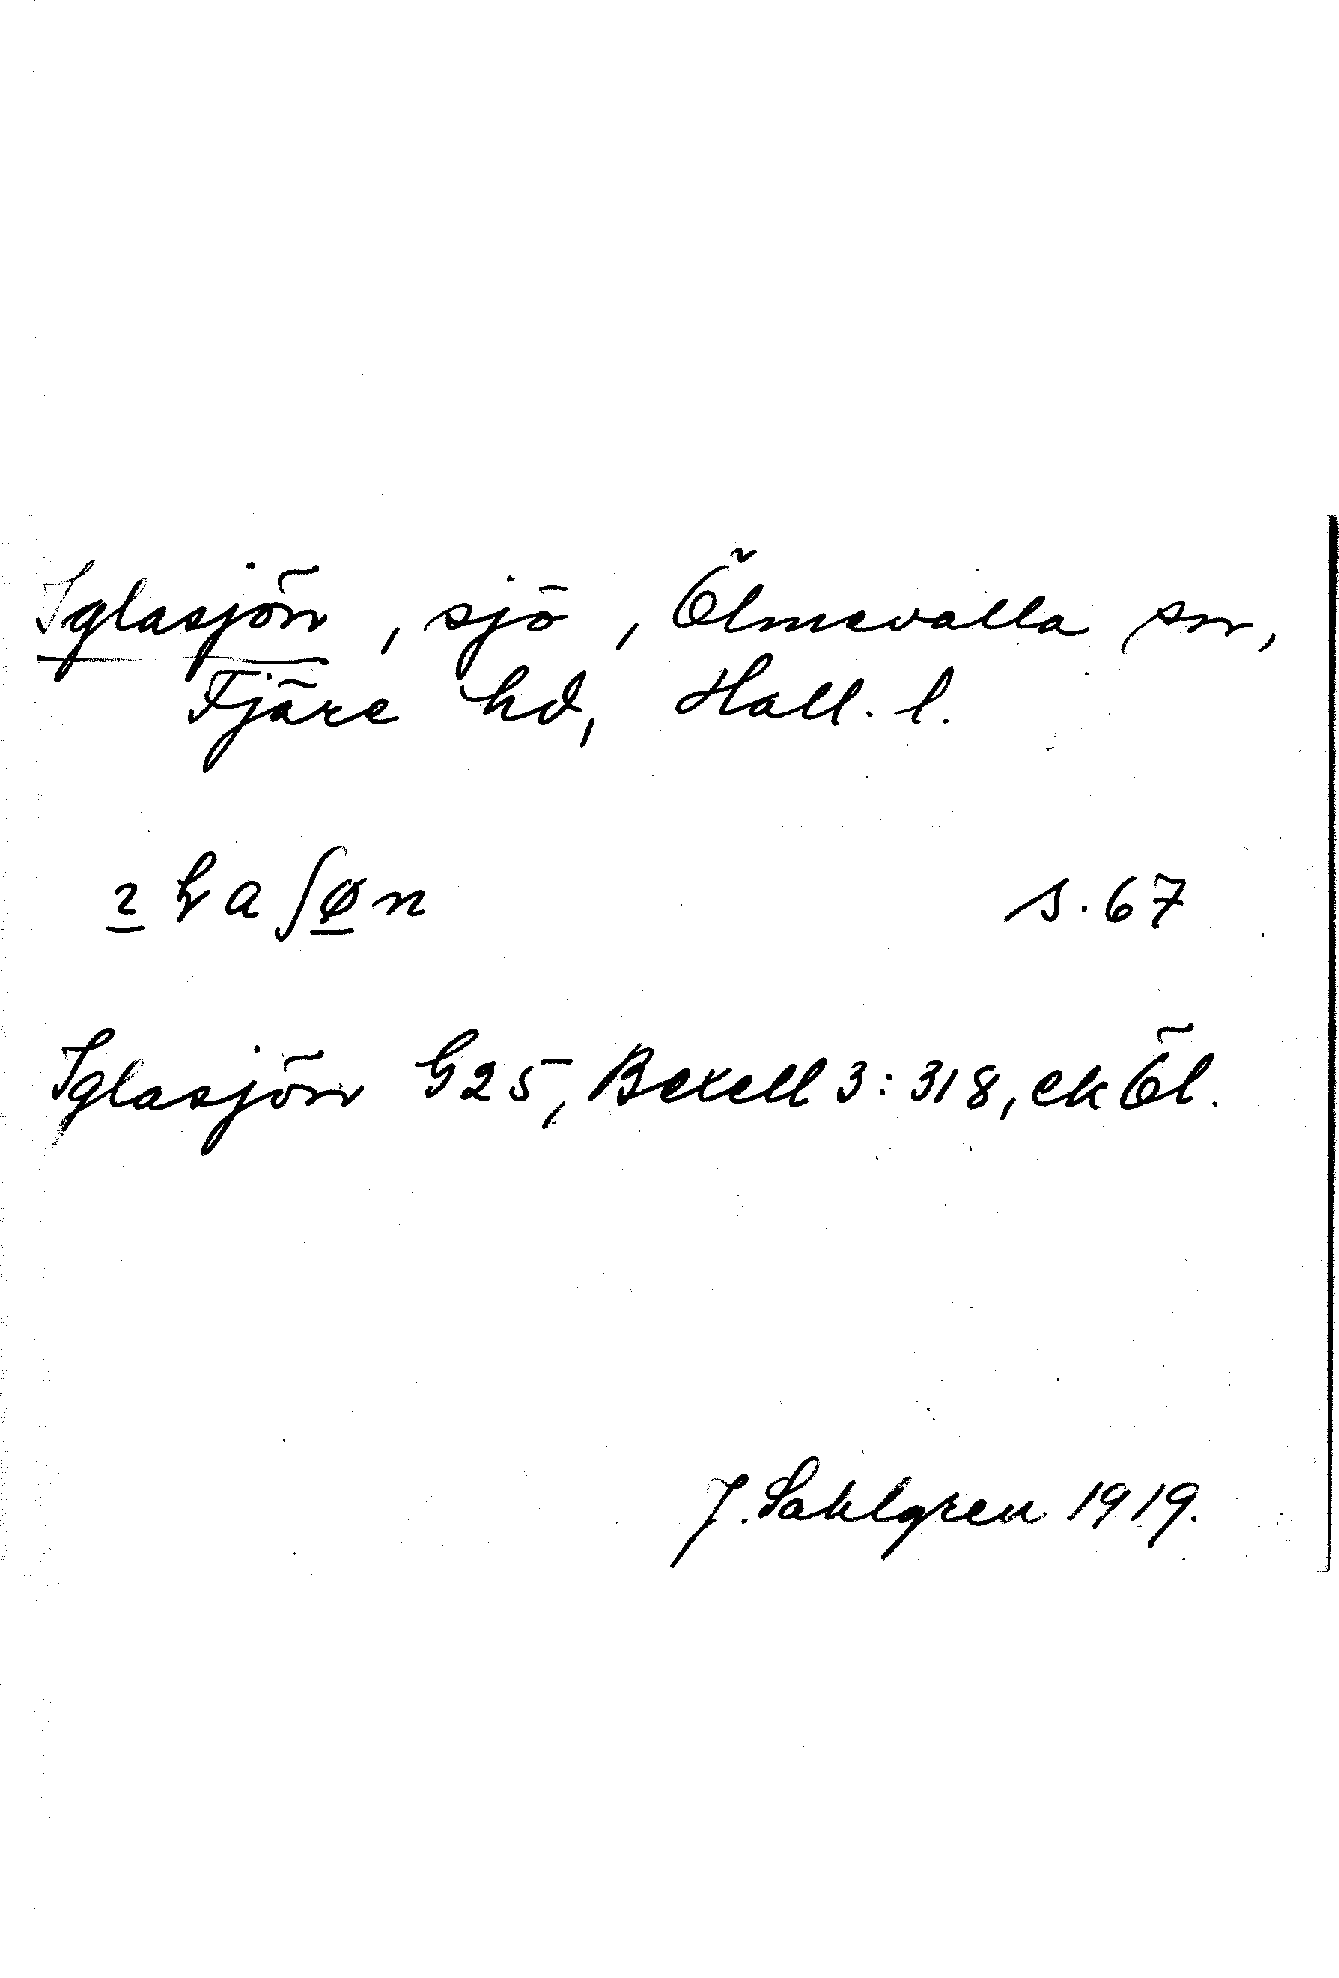 Iglasjön, sjö, Ölmevalla sn,
Fjäre hd, Hall. l.
s. 67
Iglasjön G25, Bexell 3:318, ek Öl.
J. Sahlgren 1919.